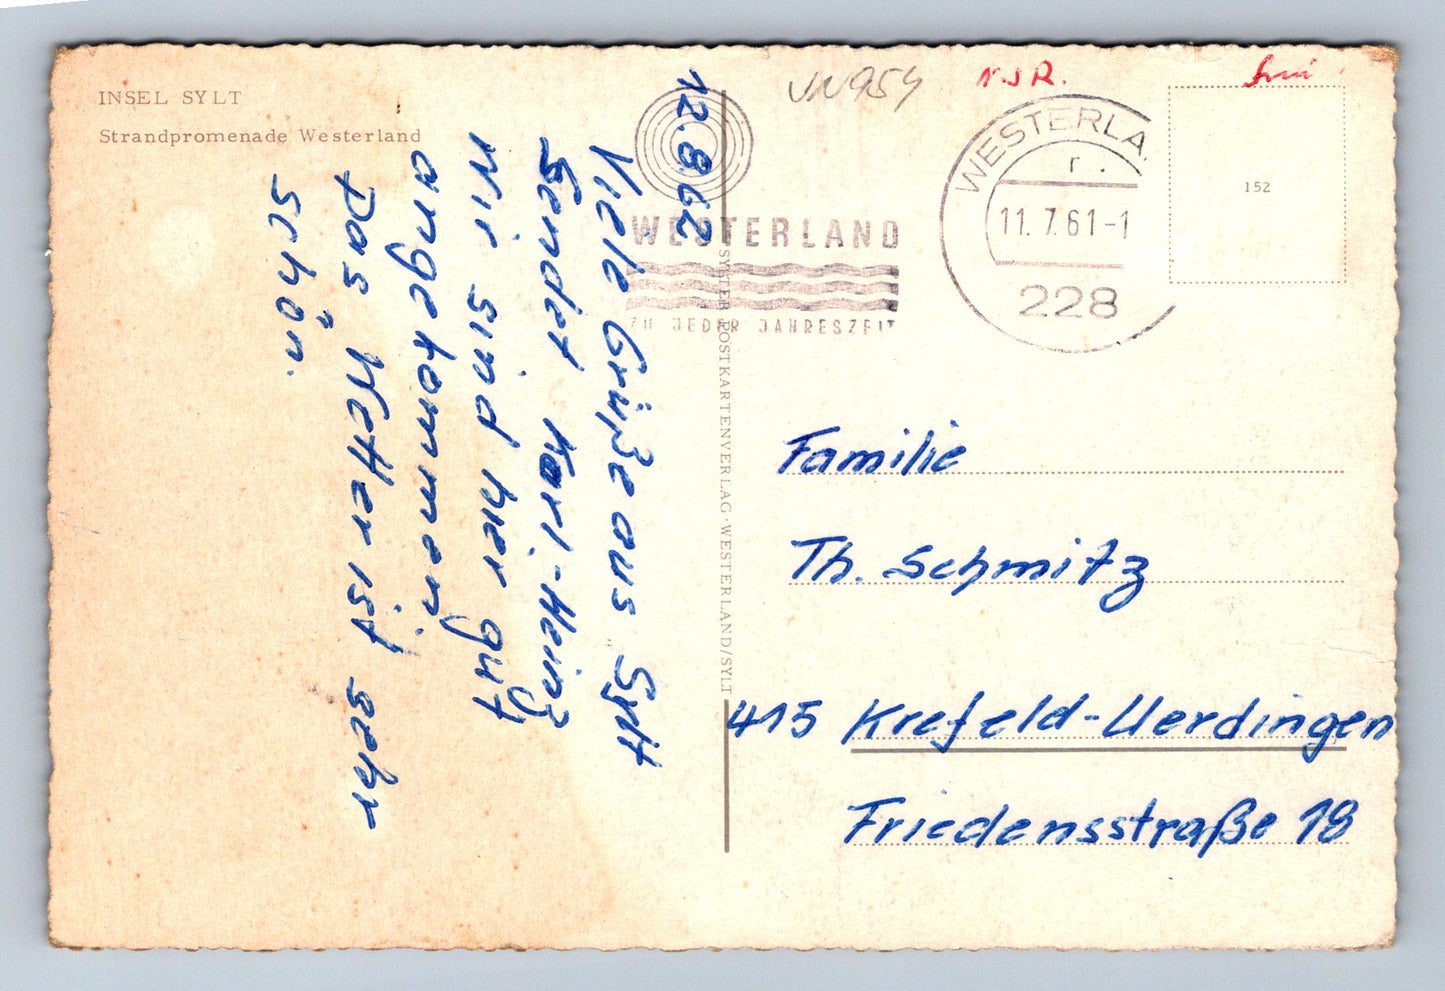 INSEL SYLT
Strandpromenade Westerland
12.8.62
Viele Grüße aus Sylt
Sendet Karl-Heinz
Wir sind hier gut
angekommen
Das Wetter ist sehr
schön.
WESTERLAND
ZU JEDER JAHRESZEIT
SYLTER POSTKARTENVERLAG·WESTERLAND/SYLT
N.S.R.
WESTERLA
11.7.61-1
228
152
Familie
Th. Schmitz
415 Krefeld-Uerdingen
Friedensstraße 18